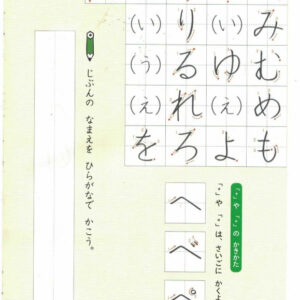 みむめも
(い)ゆ(え)よ
りるれろ
(い)(う)(え)を
「゛」や「゜」の かきかた
「゛」や「゜」は、さいごに かくよ
へ
じぶんの なまえを ひらがなで かこう。